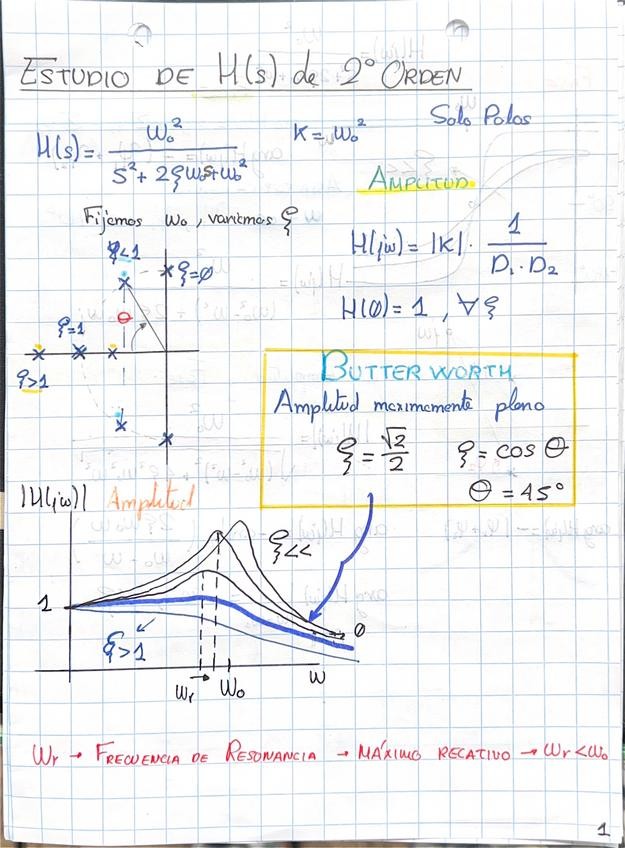 ESTUDIO DE H(s) de 2º ORDEN
H(s) = ω₀² / (s² + 2ξω₀s + ω₀²)
K = ω₀²
Solo Polos
AMPLITUD
Fijamos ω₀, variamos ξ
H(jω) = |K| · 1 / (D₁ · D₂)
H(0) = 1, ∀ξ
ξ<1
ξ=0
θ
ξ=1
ξ>1
BUTTERWORTH
Amplitud maximamente plano
ξ = √2 / 2
ξ = cos θ
θ = 45°
|H(jω)| Amplitud
ξ<<
1
0
ξ>1
ωr → ω₀
ω
ωr → FRECUENCIA DE RESONANCIA → MÁXIMO RECATIVO → ωr < ω₀
1